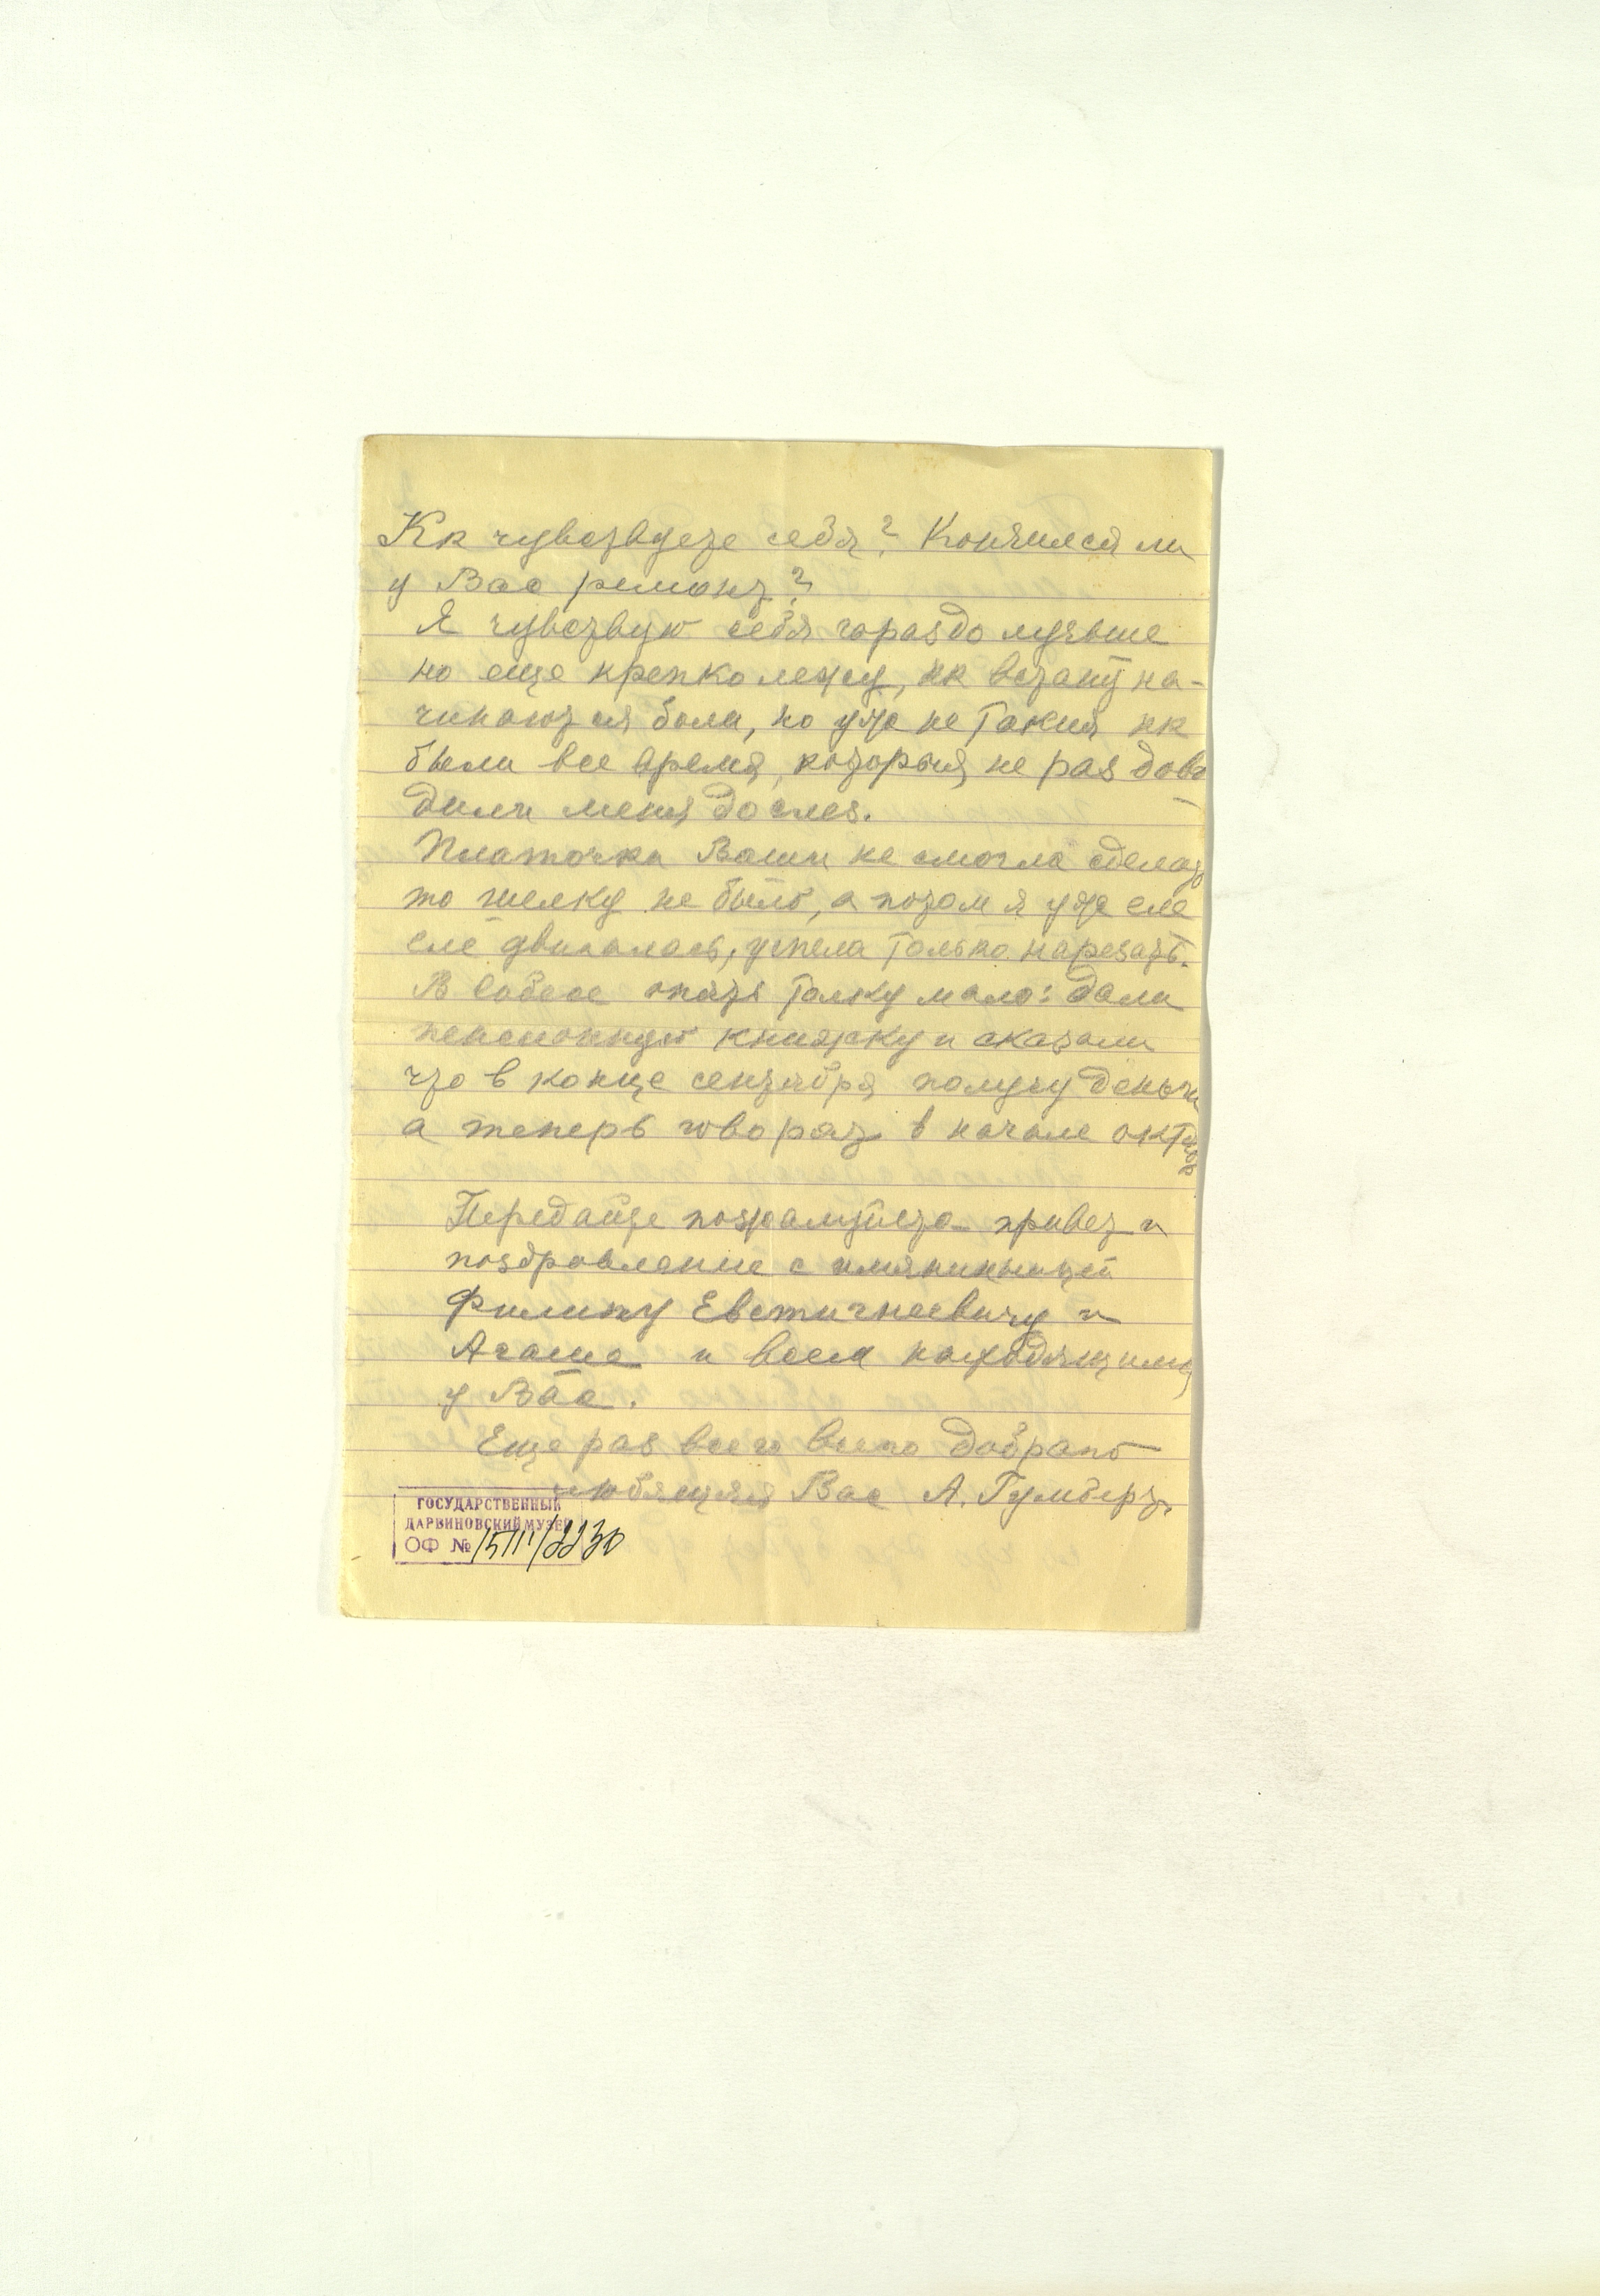 Кк чувствуете себя? Кончился ли
у Вас ремонт?
Я чувствую себя гораздо лучьше
но еще крепко лежу, кк встану на-
чинаются боли, но уже не такия кк
были все время, которыя не раз дово
дили меня до слез.
Платочки Ваши не смогла сделать
то шелку не было, а потом я уже еле
еле двигалась, успела только нарезать.
В собесе опять толку мало: дали
пенсионную книжку и сказали
что в конце сентября получу деньги
а теперь говорят в начале октября
Передайте пожалуйста привет и
поздравление с имянинницей
Филипу Евстигнеевичу и
Агаше и всем находящимся
у Вас.
Еще раз всего всего доброго
любящая Вас А. Гумберт.
ГОСУДАРСТВЕННЫЙ
ДАРВИНОВСКИЙ МУЗЕЙ
ОФ №